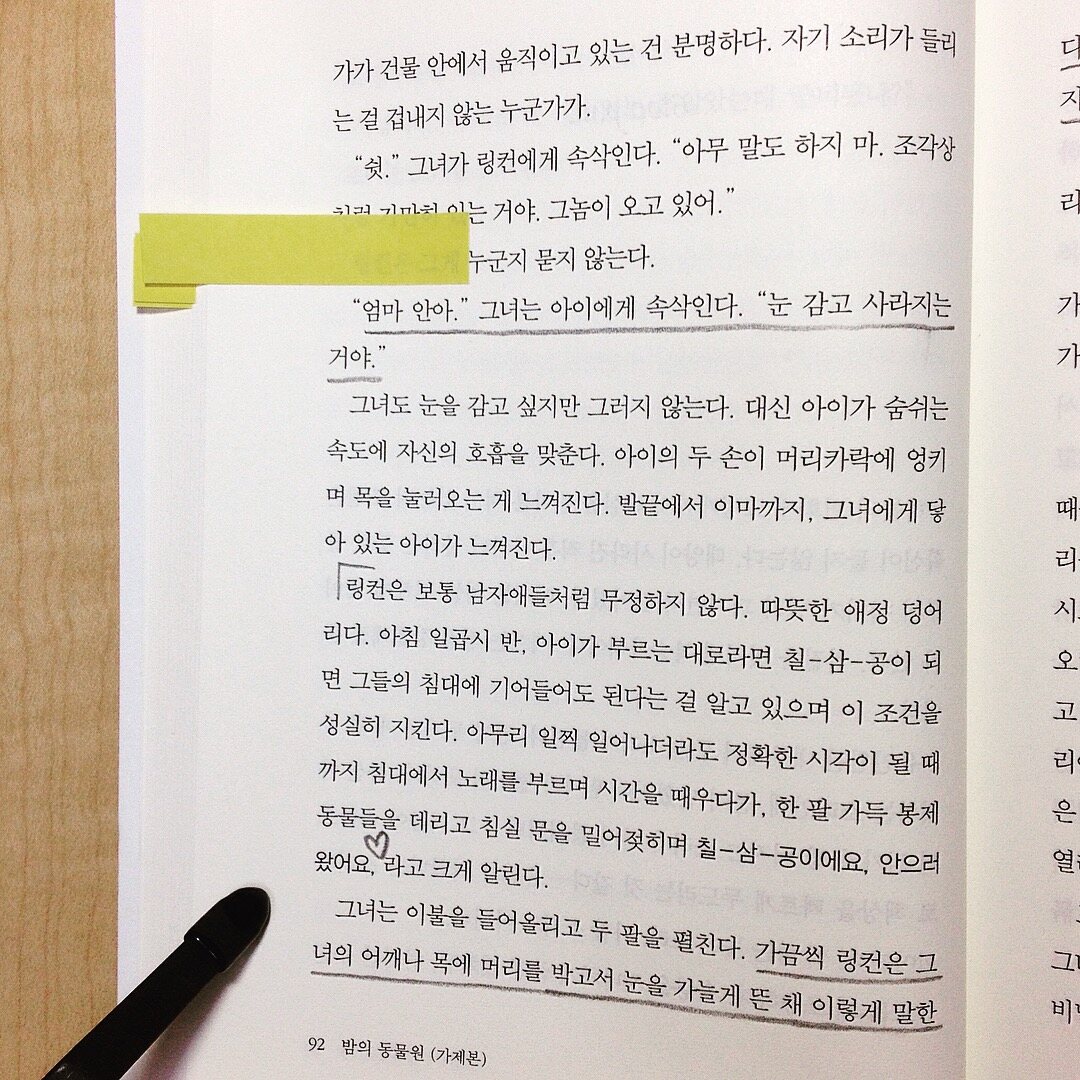 가가 건물 안에서 움직이고 있는 건 분명하다. 자기 소리가 들리
는 걸 겁내지 않는 누군가가.
“쉿.” 그녀가 링컨에게 속삭인다. “아무 말도 하지 마. 조각상
는 거야. 그놈이 오고 있어.”
누군지 묻지 않는다.
“엄마 안아.” 그녀는 아이에게 속삭인다. “눈 감고 사라지는
거야.”
그녀도 눈을 감고 싶지만 그러지 않는다. 대신 아이가 숨쉬는
속도에 자신의 호흡을 맞춘다. 아이의 두 손이 머리카락에 엉키
며 목을 눌러오는 게 느껴진다. 발끝에서 이마까지, 그녀에게 닿
아 있는 아이가 느껴진다.
링컨은 보통 남자애들처럼 무정하지 않다. 따뜻한 애정 덩어
리다. 아침 일곱시 반, 아이가 부르는 대로라면 칠-삼-공이 되
면 그들의 침대에 기어들어도 된다는 걸 알고 있으며 이 조건을
성실히 지킨다. 아무리 일찍 일어나더라도 정확한 시각이 될 때
까지 침대에서 노래를 부르며 시간을 때우다가, 한 팔 가득 봉제
동물들을 데리고 침실 문을 밀어젖히며 칠-삼-공이에요, 안으러
왔어요, 라고 크게 알린다.
그녀는 이불을 들어올리고 두 팔을 펼친다. 가끔씩 링컨은 그
녀의 어깨나 목에 머리를 박고서 눈을 가늘게 뜬 채 이렇게 말한
92 밤의 동물원 (가제본)